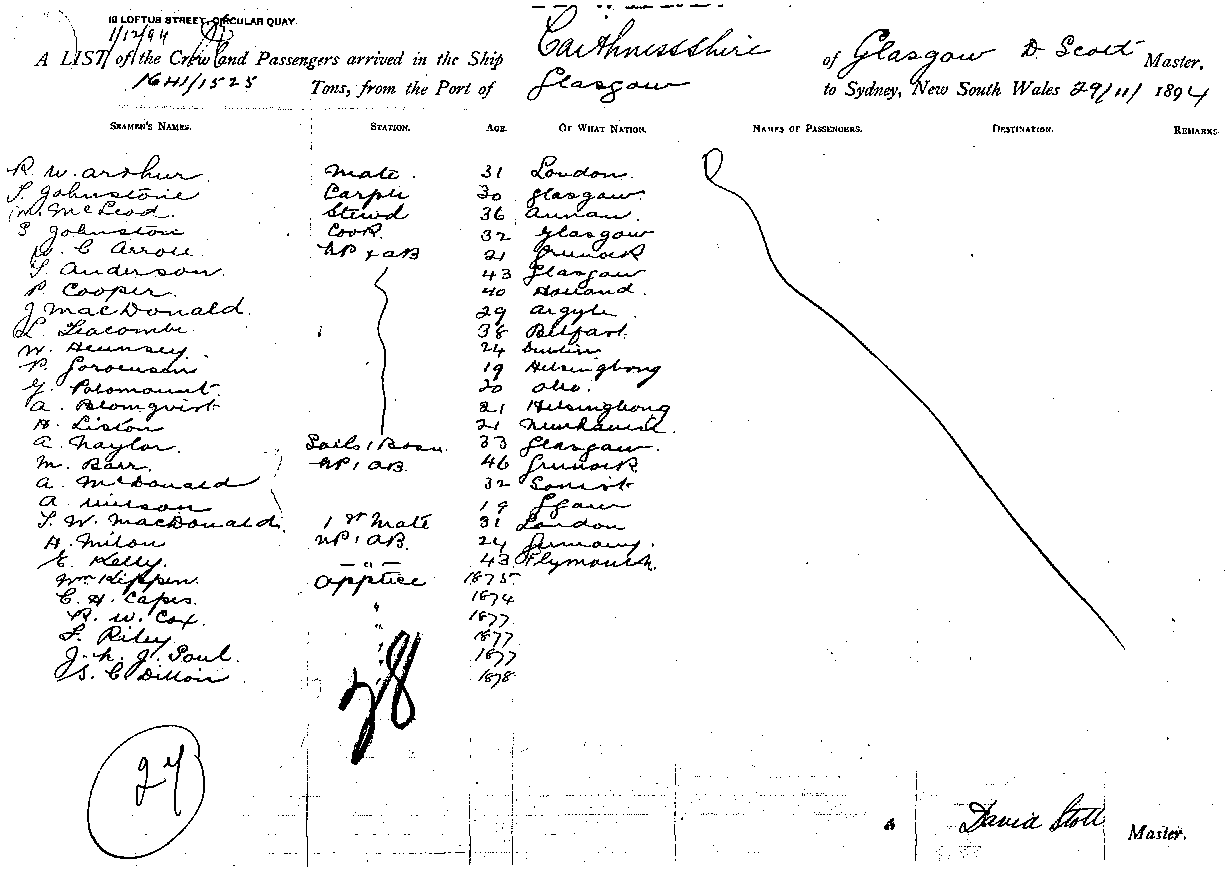 10 LOFTUS STREET, CIRCULAR QUAY.
1/12/94
A LIST of the Crew and Passengers arrived in the Ship Caithnessshire of Glasgow D. Scott Master,
1641/1525 Tons, from the Port of Glasgow to Sydney, New South Wales 29/11/1894
SEAMEN'S NAMES. STATION. AGE. OF WHAT NATION. NAMES OF PASSENGERS. DESTINATION. REMARKS.
R. W. Arthur Mate. 31 London.
Johnstone Carptr 30 Glasgow.
M. McLeod. Stewd 36 Annan.
Johnston Cook 32 Glasgow
C Arroll AB 21 Greenock
Anderson. 43 Glasgow
P. Cooper. 40 Holland.
J MacDonald. 29 Argyle
L. 38 Belfast.
W. Hennsey. 24 Dublin
P. Sorensen 19 Helsingborg
G. 20
A. Blomqvist 21 Helsingborg
H. Liston 21
A. Naylor. Sails & Bosn. 33 Glasgow.
M. Barr. AB. 46 Greenock
A. McDonald 32
A. 19
W. MacDonald. 1st Mate 31 London
H. Milon AB. 24 Germany.
E. Kelly. — " — 43 Plymouth.
Wm Kippen. Apptice 1875
C. H. Capes. " 1874
R. W. Cox. " 1877
Riley " 1877
J. Paul. " 1877
C Dillon " 1878
28
27
David Stott Master.